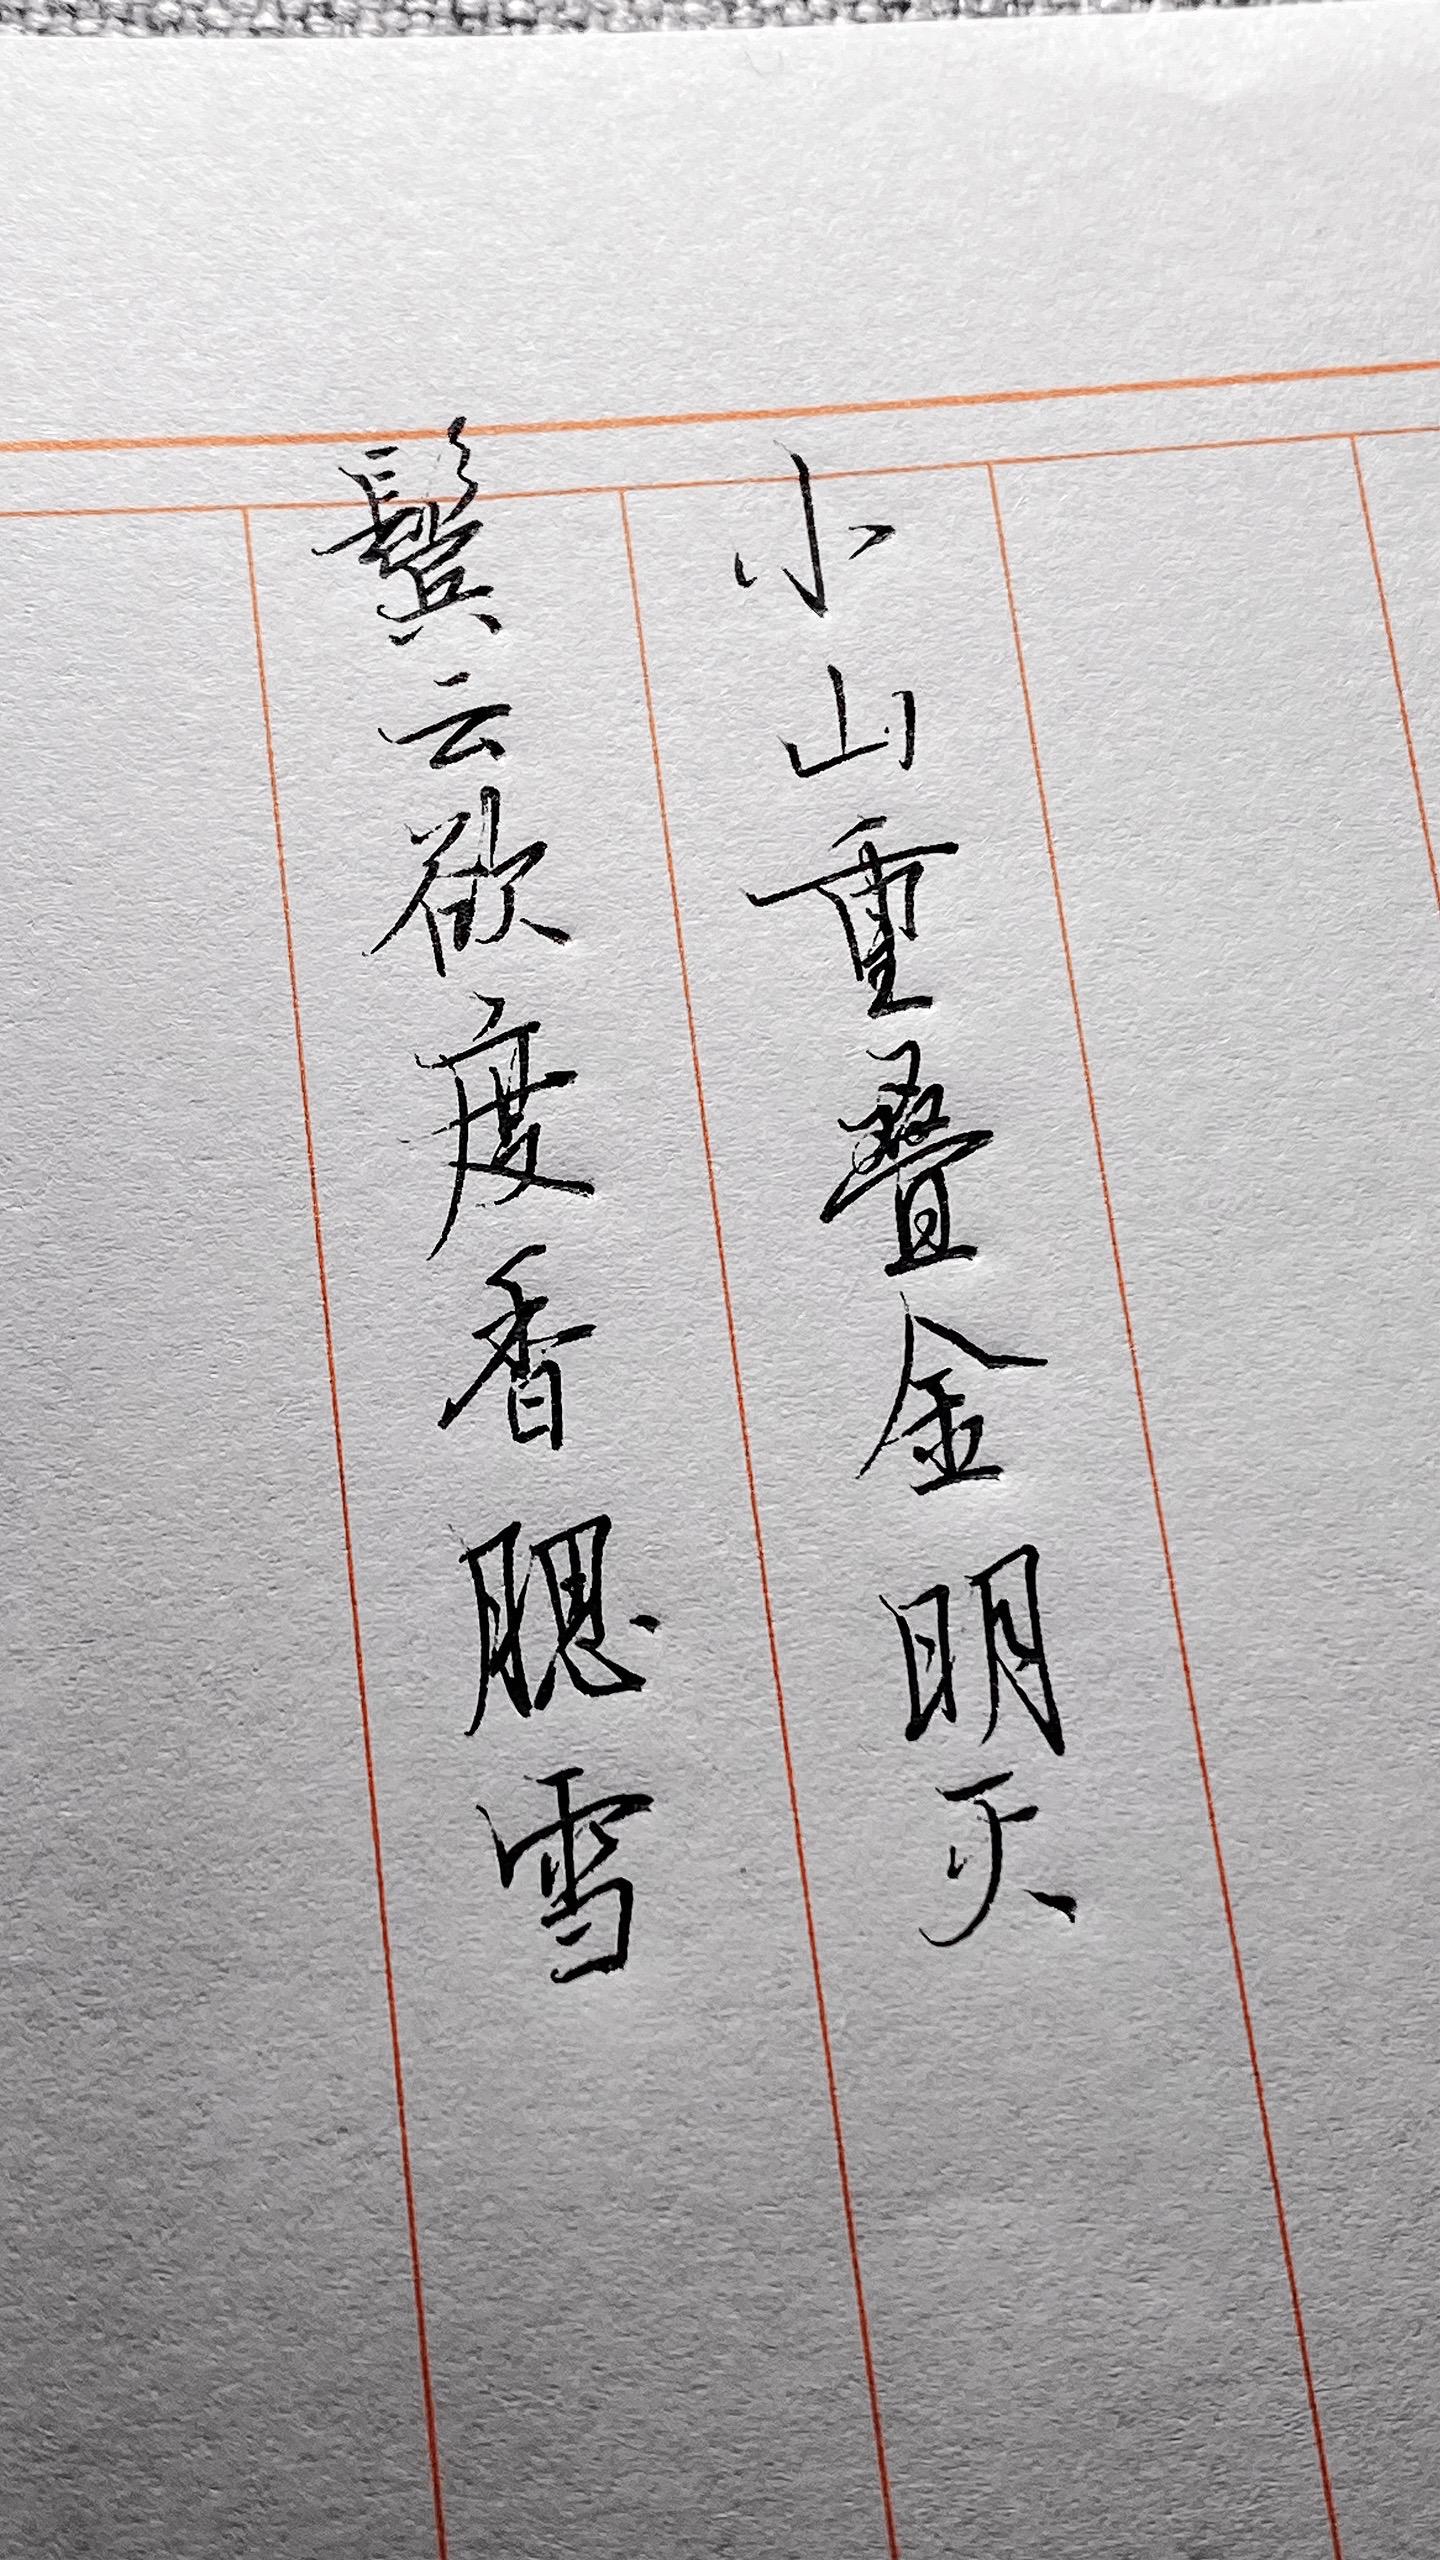 小山重叠金明灭
鬓云欲度香腮雪